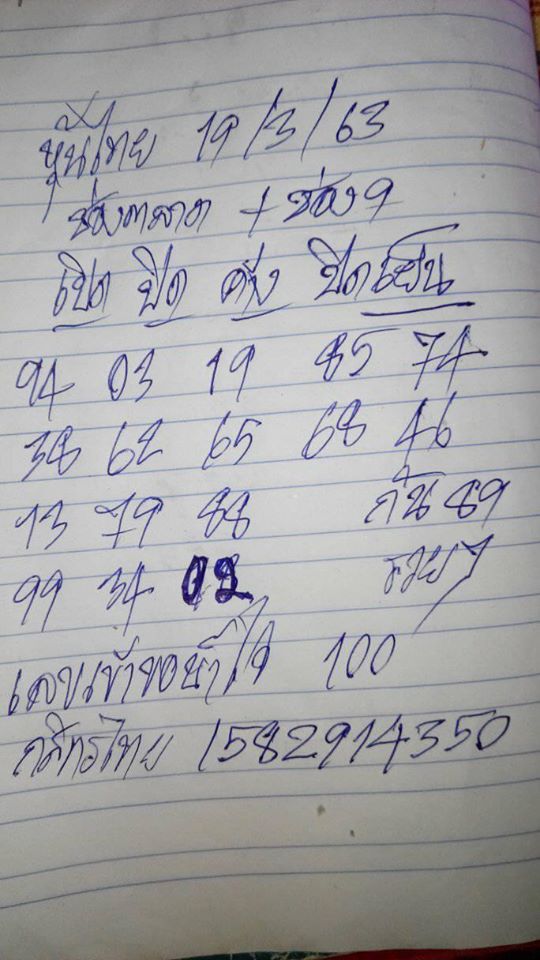 หุ้นไทย 19/3/63
ช่องตลาด + ช่อง 9
เปิด ปิด ครึ่ง ปิดเย็น
94 03 19 85 74
38 62 65 68 46
13 79 88 กัน 89
99 34 02 รวยๆ
เลขเข้าขอน้ำใจ 100
กสิกรไทย 1582914350